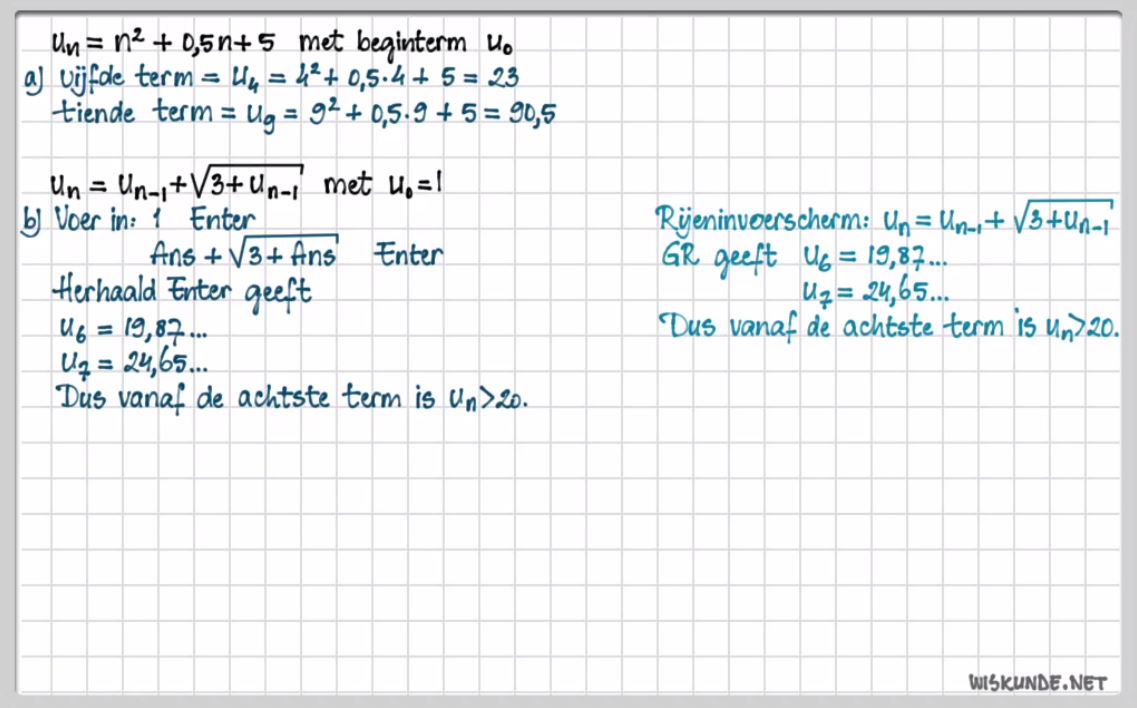 uₙ = n² + 0,5n + 5 met beginterm u₀
a) vijfde term = u₄ = 4² + 0,5·4 + 5 = 23
tiende term = u₉ = 9² + 0,5·9 + 5 = 90,5
uₙ = uₙ₋₁ + √(3 + uₙ₋₁) met u₀ = 1
b) Voer in: 1 Enter
Ans + √(3 + Ans) Enter
Herhaald Enter geeft
u₆ = 19,87...
u₇ = 24,65...
Dus vanaf de achtste term is uₙ > 20.
Rijeninvoerscherm: uₙ = uₙ₋₁ + √(3 + uₙ₋₁)
GR geeft u₆ = 19,87...
u₇ = 24,65...
Dus vanaf de achtste term is uₙ > 20.
WISKUNDE.NET